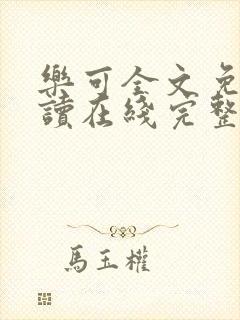 樂可全文免
讀在綫完整
馬玉權